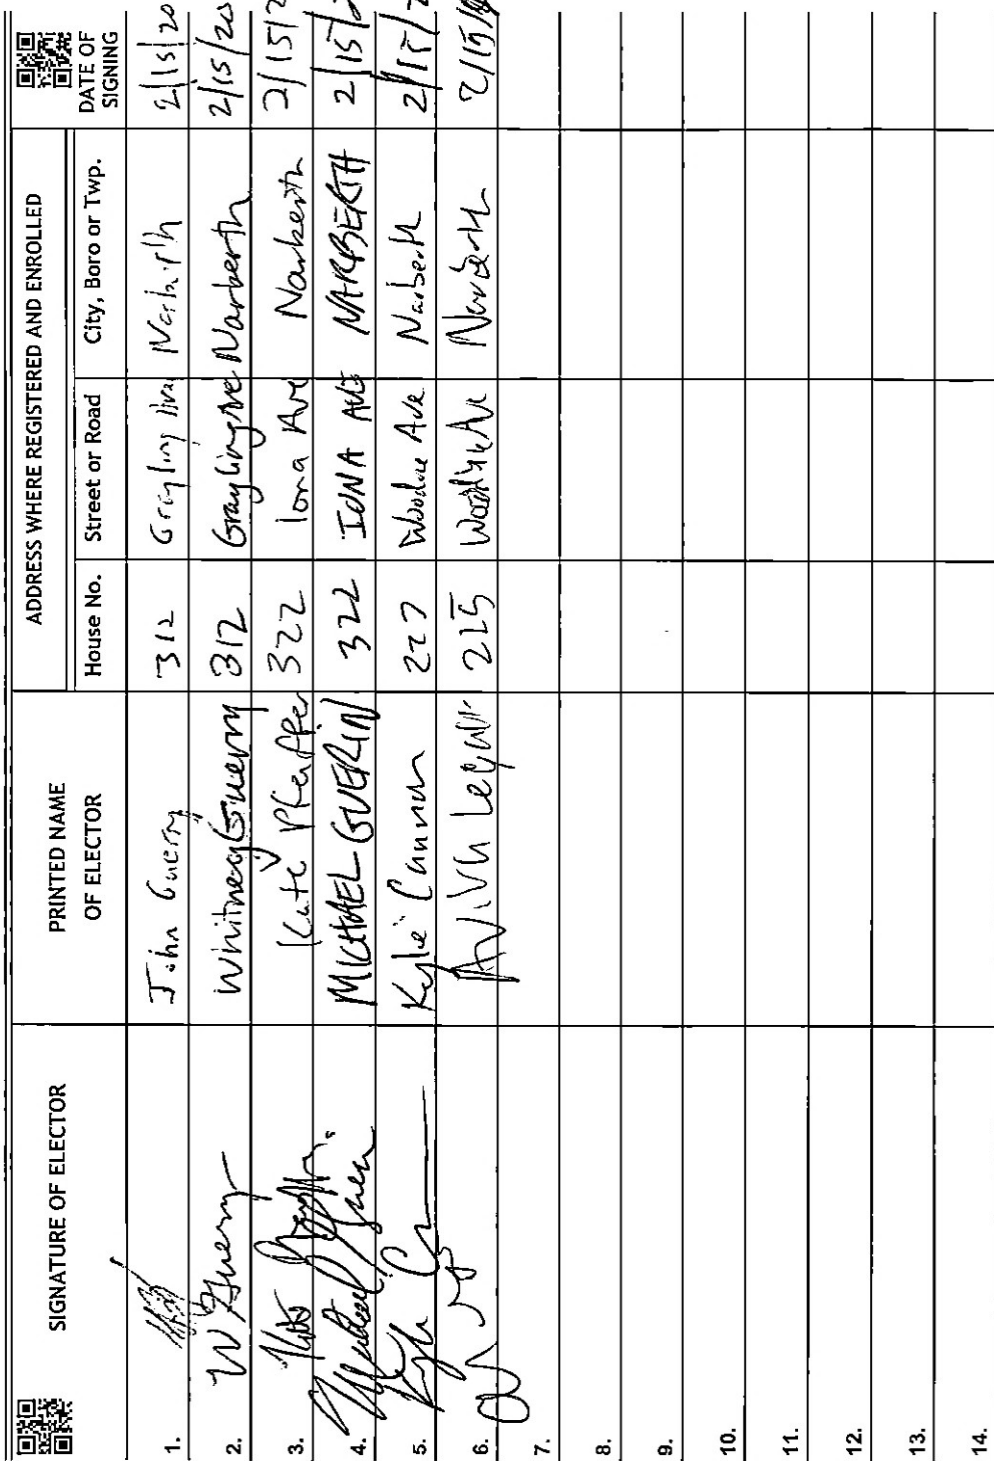 SIGNATURE OF ELECTOR
PRINTED NAME
OF ELECTOR
ADDRESS WHERE REGISTERED AND ENROLLED
House No. Street or Road City, Boro or Twp.
DATE OF
SIGNING
1. John Guerry 312 Grayling Narberth 2/15/20
2. W Guerry Whitney Guerry 312 Grayling Ave Narberth 2/15/20
3. Kate Pfeiffer 322 Iona Ave Narberth 2/15/2
4. MICHAEL GUERIN 322 IONA AVE NARBERTH 2/15/2
5. Kylie Cannon 227 Ave Narberth 2/15/2
6. 215 Narberth 2/15/
7.
8.
9.
10.
11.
12.
13.
14.